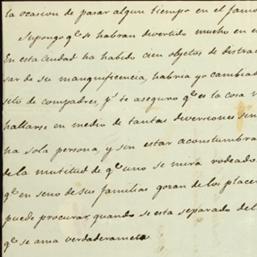 la ocasion de pasar algun tiempo en el famo
Supongo qe se habran divertido mucho en e
En esta ciudad ha habido cien objetos de distrac
sar de su magnificencia, habria yo cambiad
seto de compadres, ps te aseguro qe es la cosa
hallarse en medio de tantas diversiones sin
ha sola persona, y sin estar acostumbra
de la multitud de qe uno se mira rodeado
qe en seno de sus familias gozan de los place
puede procurar, quando se esta separado del
qe se ama verdaderamete